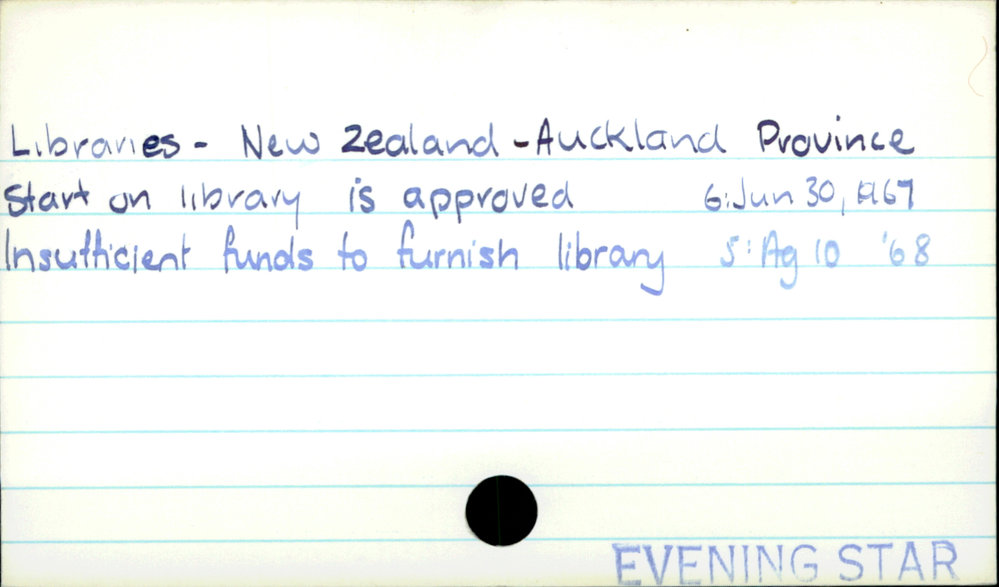 Libraries - New Zealand - Auckland Province
Start on library is approved 6:Jun 30, 1967
Insufficient funds to furnish library 5: Ag 10 '68
EVENING STAR